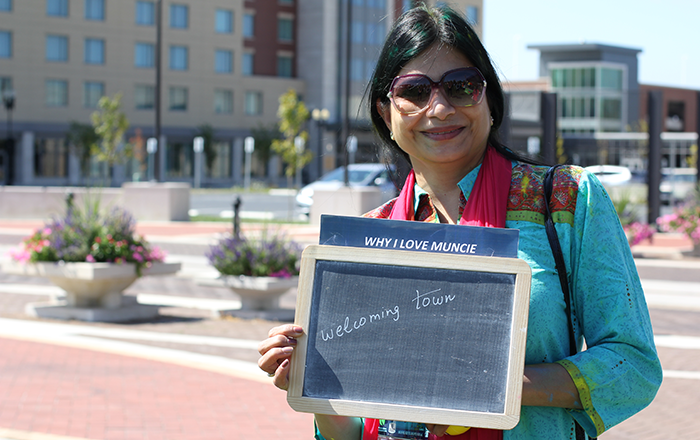 WHY I LOVE MUNCIE
welcoming town